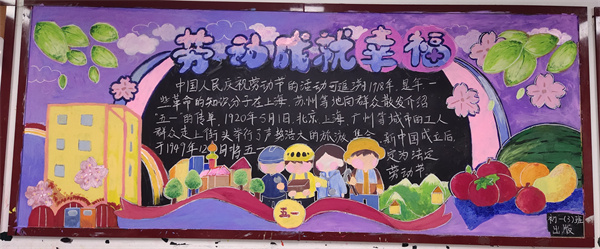 劳动成就幸福
中国人民庆祝劳动节的活动可追溯1918年,是年一
些革命的知识分子在上海、苏州等地向群众散发介绍
"五一"的传单,1920年5月1日,北京、上海、广州等城市的工人
群众走上街头举行了声势浩大的旅游、集会,新中国成立后,
于1949年12月将五一
定为法定
劳动节
五一
初一(3)班
出版